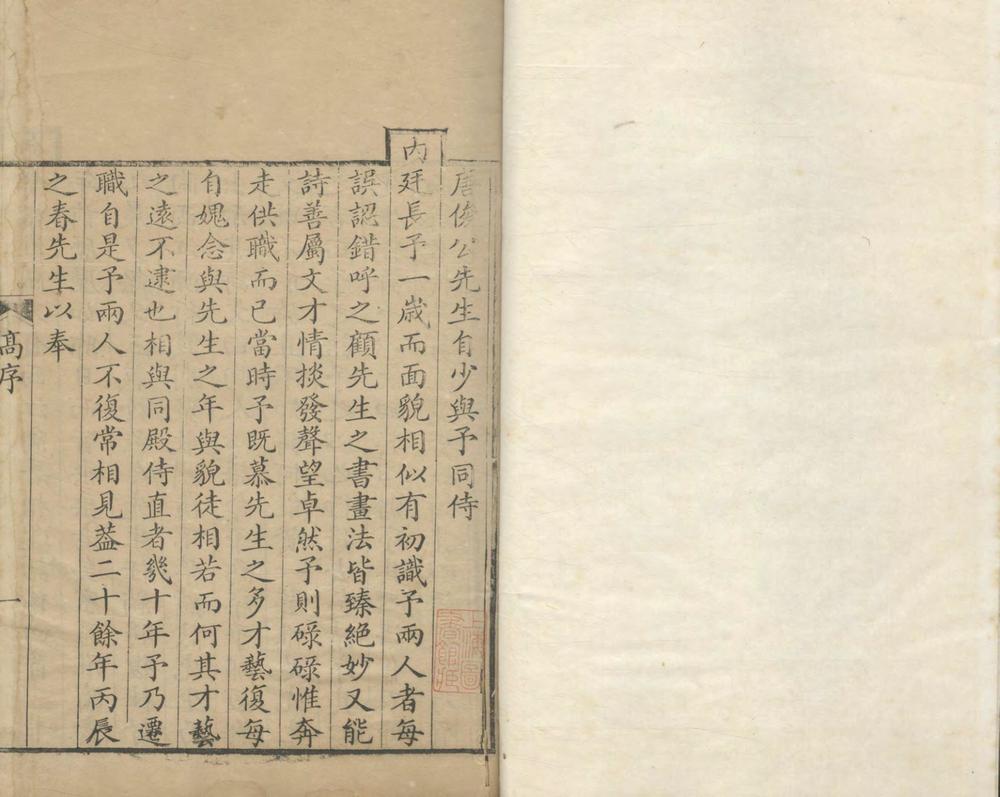 唐俊公先生自少與予同侍
內廷長予一歲而面貌相似有初識予兩人者每
誤認錯呼之顧先生之書畫法皆臻絕妙又能
詩善屬文才情掞發聲望卓然予則碌碌惟奔
走供職而已當時予既慕先生之多才藝復每
自媿念與先生之年與貌徒相若而何其才藝
之遠不逮也相與同殿侍直者幾十年予乃遷
職自是予兩人不復常相見葢二十餘年丙辰
之春先生以奉
高序
一
上海圖書館藏